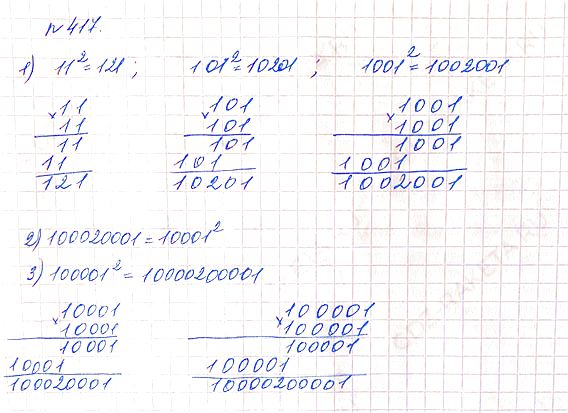 № 417.
1) 11² = 121 ; 101² = 10201 ; 1001² = 1002001
× 11
11
11
11
121
× 101
101
101
101
10201
× 1001
1001
1001
1001
1002001
2) 100020001 = 10001²
3) 100001² = 10000200001
× 10001
10001
10001
10001
100020001
× 100001
100001
100001
100001
10000200001